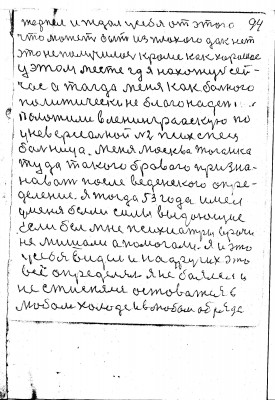 терпел и ждал у себя от этого 94
что может быть из плохого дак нет
это не получилося кроме как хорошое
у этом месте где я нахожуся сей-
час а тагда меня как балного
политически не благонадеж
положили в ленинграаскую по
универсалной №2 психспец
балница. меня Москва Таганка
туда такого браваго призна-
нават после веденского опре-
деление. я тогда 53 года имел
у меня были силы выдающие
если бы мне психиатры врачи
не мишали апомогали. я и это
у себя видил и на других это
всё определял я не баялся
не стиснялся оставатся в
любом холоде и в любом обряде